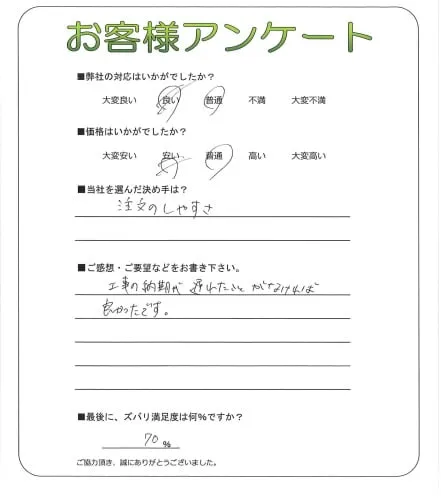 お客様アンケート
■弊社の対応はいかがでしたか？
大変良い 良い 普通 不満 大変不満
■価格はいかがでしたか？
大変安い 安い 普通 高い 大変高い
■当社を選んだ決め手は？
注文のしやすさ
■ご感想・ご要望などをお書き下さい。
工事の納期が遅れたことがなければ
良かったです。
■最後に、ズバリ満足度は何％ですか？
70％
ご協力頂き、誠にありがとうございました。